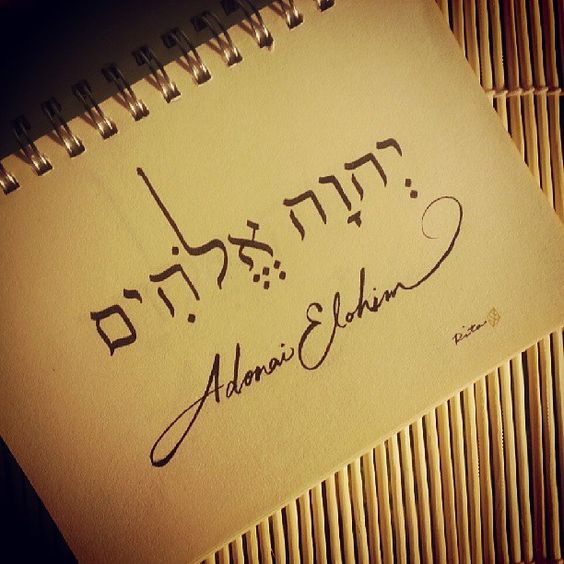 יְהוָה אֱלֹהִים
Adonai Elohim
Rita